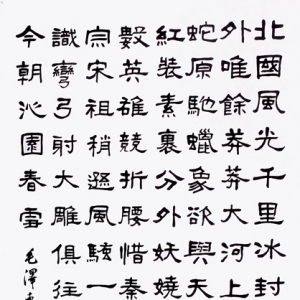 北國風光千里冰封
外唯餘莽莽大河上
蛇原馳蠟象欲與天
紅裝素裹分外妖嬈
數英雄競折腰惜秦
宗宋祖稍遜風騷一
識彎弓射大雕俱往
今朝沁園春雪 毛澤